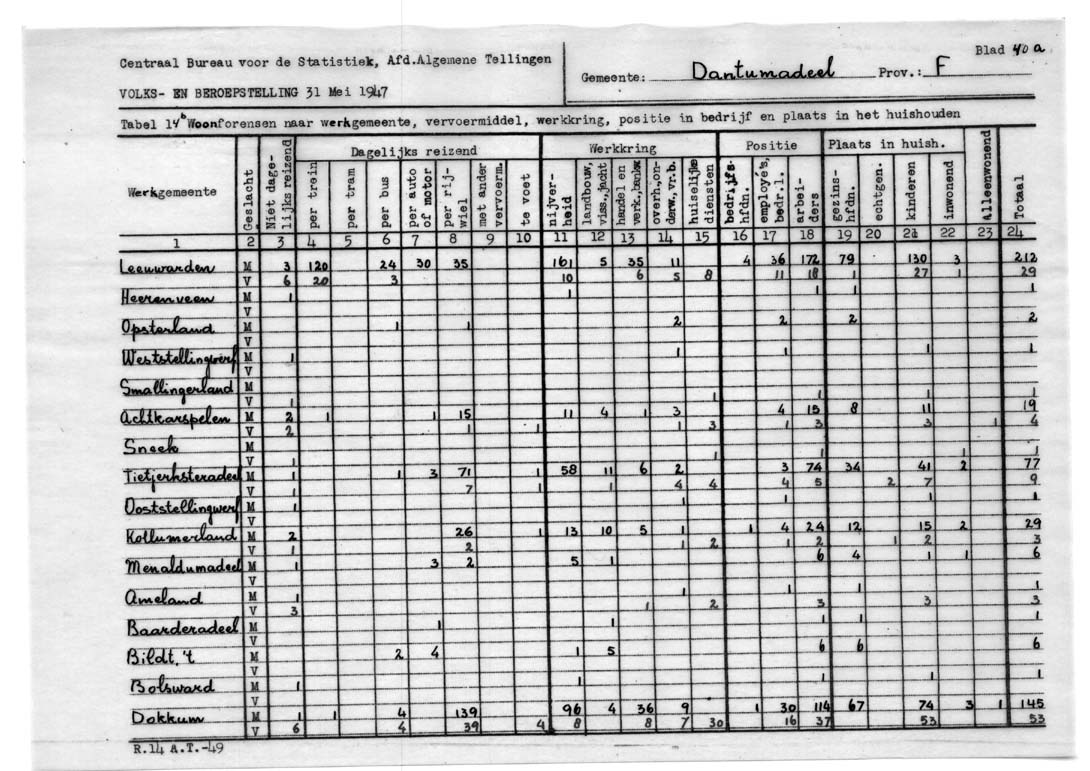 Centraal Bureau voor de Statistiek, Afd.Algemene Tellingen
VOLKS- EN BEROEPSTELLING 31 Mei 1947
Gemeente: Dantumadeel Prov.: F
Blad 40 a
Tabel 14b Woonforensen naar werkgemeente, vervoermiddel, werkkring, positie in bedrijf en plaats in het huishouden
Werkgemeente Geslacht Niet dage-lijks reizend Dagelijks reizend Werkkring Positie Plaats in huish. alleenwonend Totaal
per trein per tram per bus per auto of motor per rij-wiel met ander vervoerm. te voet nijver-heid landbouw, viss.,jacht handel en verk.,bankw overh.,on-derw.,vr.b. huiselijke diensten bedrijfs-hfdn. employé's, bedr.l. arbei-ders gezins-hfdn. echtgen. kinderen inwonend
1 2 3 4 5 6 7 8 9 10 11 12 13 14 15 16 17 18 19 20 21 22 23 24
Leeuwarden M 3 120 24 30 35 161 5 35 11 4 36 172 79 130 3 212
V 6 20 3 10 6 5 8 11 18 1 27 1 29
Heerenveen M 1 1 1 1 1
V
Opsterland M 1 1 2 2 2 2
V
Weststellingwerf M 1 1 1 1 1
V
Smallingerland M
V 1 1 1 1 1
Achtkarspelen M 2 1 1 15 11 4 1 3 4 15 8 11 19
V 2 1 1 1 3 1 3 3 1 4
Sneek M
V 1 1 1 1 1
Tietjerksteradeel M 1 1 3 71 1 58 11 6 2 3 74 34 41 2 77
V 1 7 1 1 4 4 4 5 2 7 9
Ooststellingwerf M 1 1 1 1 1
V
Kollumerland M 2 26 1 13 10 5 1 1 4 24 12 15 2 29
V 1 2 1 2 1 2 1 2 3
Menaldumadeel M 1 3 2 5 1 6 4 1 1 6
V
Ameland M 1 1 1 1 1
V 3 1 2 3 3 3
Baarderadeel M 1 1 1 1 1
V
Bildt, 't M 2 4 1 5 6 6 6
V
Bolsward M 1 1 1 1 1
V
Dokkum M 1 1 4 139 96 4 36 9 1 30 114 67 74 3 1 145
V 6 4 39 4 8 8 7 30 16 37 53 53
R.14 A.T.-49